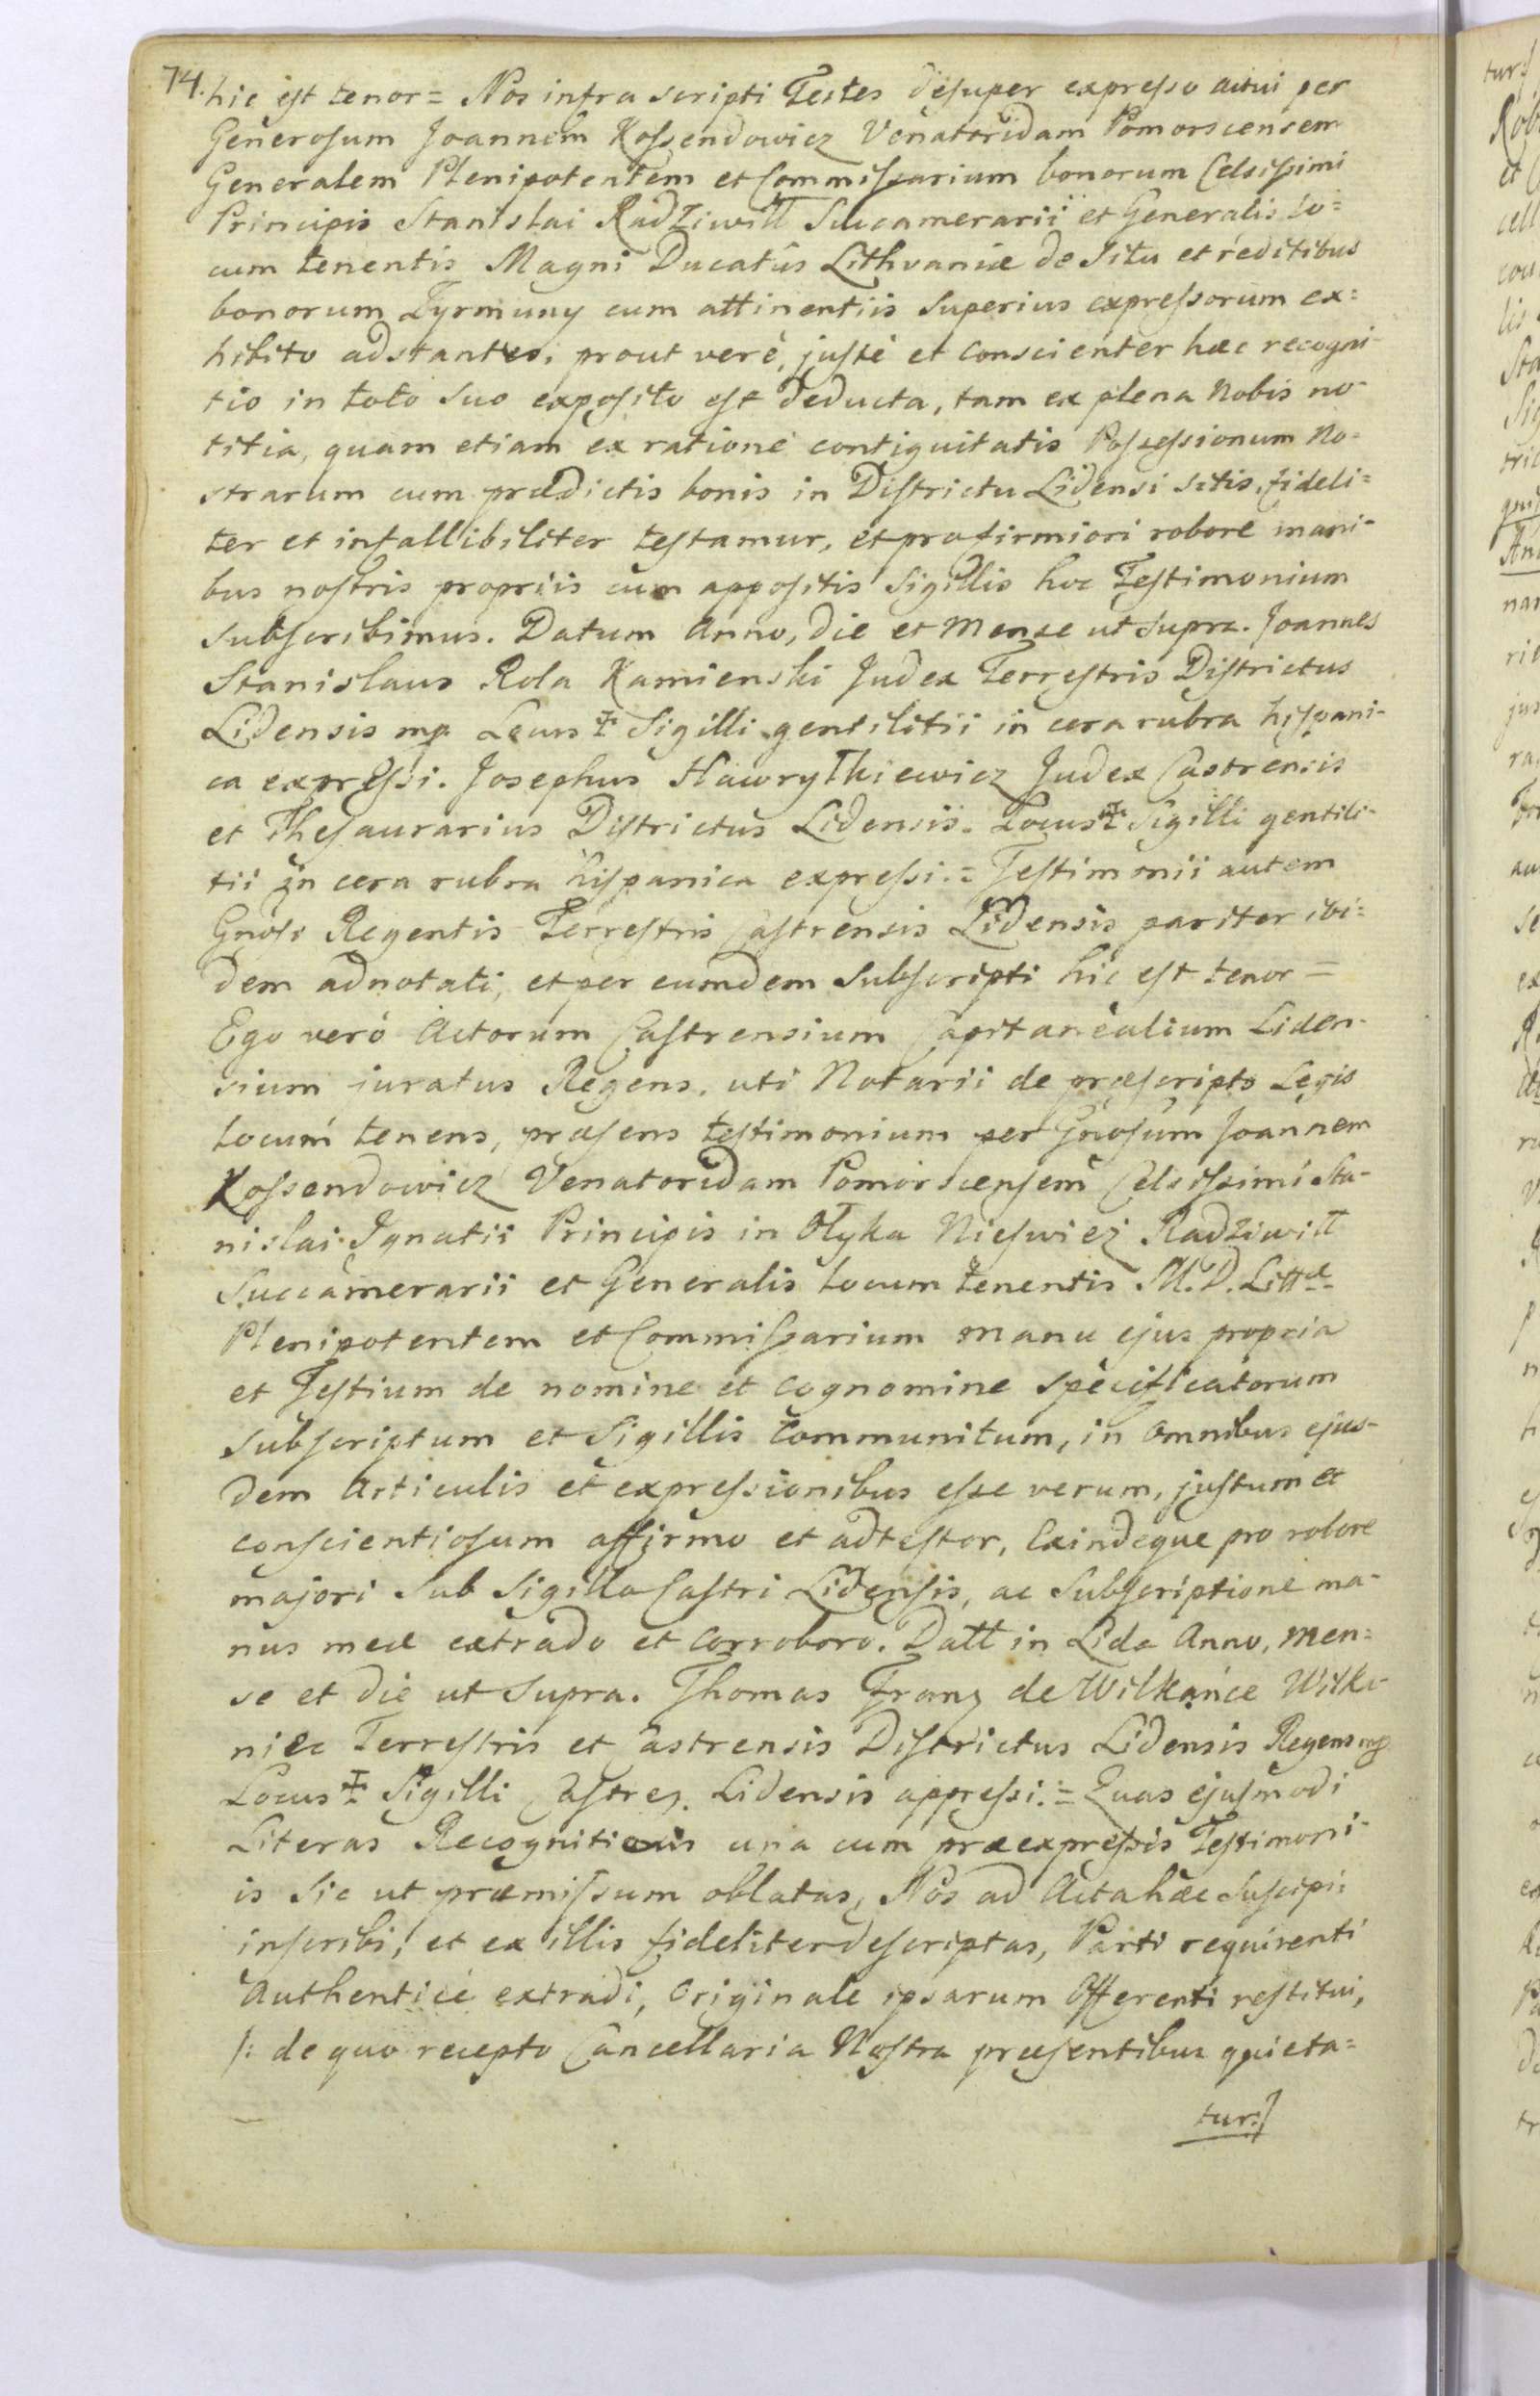 74. hic est tenor = Nos infra scripti Testes desuper expresso actui per
Generosum Joannem Kossendowicz Venatoridam Pomorscensem
Generalem Plenipotentem et Commissarium bonorum Celsissimi
Principis Stanislai Radziwill Succamerarii et Generalis lo=
cum tenentis Magni Ducatûs Lithvaniæ de Situ et reditibus
bonorum Zyrmuny cum attinentiis Superius expressorum ex=
hibito adstantes, prout verè, justè et conscienter hæc recogni-
tio in toto suo exposito est deducta, tam ex plena Nobis no-
titia, quam etiam ex ratione contiguitatis Possessionum No=
strarum cum prædictis bonis in Districtu Lidensi sitis, fideli=
ter et infallibiliter testamur, et pro firmiori robore mani-
bus nostris propriis cum appositis Sigillis hoc Testimonium
Subscribimus. Datum Anno, die et Mense ut Supra. Joannes
Stanislaus Rola Kamienski Judex Terrestris Districtus
Lidensis mp Locus ‡ Sigilli gentilitii in cera rubra hispani-
ca expressi. Josephus Hawrylkiewicz Judex Castrensis
et Thesaurarius Districtus Lidensis. Locus ‡ Sigilli gentili-
tii in cera rubra hispanica expressi. = Testimonii autem
Gnosi Regentis Terrestris Castrensis Lidensis pariter ibi=
dem adnotati, et per eumdem Subscripti hic est tenor =
Ego verò Actorum Castrensium Capitanealium Liden-
sium juratus Regens, uti Notarii de præscripto Legis
locum tenens, præsens testimonium per Gnosum Joannem
Kossendowicz Venatoridam Pomorscensem Celsissimi Sta-
nislai Ignatii Principis in Olyka Nieswiez Radziwill
Succamerarii et Generalis locum tenentis M. D. Littæ
Plenipotentem et Commissarium manu ejus propria
et Testium de nomine et cognomine specificatorum
Subscriptum et Sigillis communitum, in omnibus ejus-
dem Articulis et expressionibus esse verum, justum et
conscientiosum affirmo et adtestor, Exindeque pro robore
majori Sub Sigillo Castri Lidensis, ac Subscriptione ma-
nus meæ extrado et corroboro. Datt in Lida Anno, men=
se et die ut Supra. Thomas Franz de Wilkańce Wilka-
niec Terrestris et Castrensis Districtus Lidensis Regens mp.
Locus ‡ Sigilli Castren. Lidensis appressi. = Quas ejusmodi
Literas Recognitionis una cum præexpressis Testimoni-
is Sic ut præmissum oblatas, Nos ad Acta hæc Suscipi:
inscribi, et ex illis fideliter descriptas, Parti requirenti
Authenticè extradi, Originale ipsarum Offerenti restitui,
/: de quo recepto Cancellaria Nostra præsentibus quieta=
tur:/